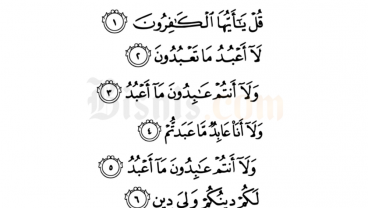 قُلْ يَٰٓأَيُّهَا ٱلْكَٰفِرُونَ ١
لَآ أَعْبُدُ مَا تَعْبُدُونَ ٢
وَلَآ أَنتُمْ عَٰبِدُونَ مَآ أَعْبُدُ ٣
وَلَآ أَنَا۠ عَابِدٌ مَّا عَبَدتُّمْ ٤
وَلَآ أَنتُمْ عَٰبِدُونَ مَآ أَعْبُدُ ٥
لَكُمْ دِينُكُمْ وَلِىَ دِينِ ٦
Bisnis.com